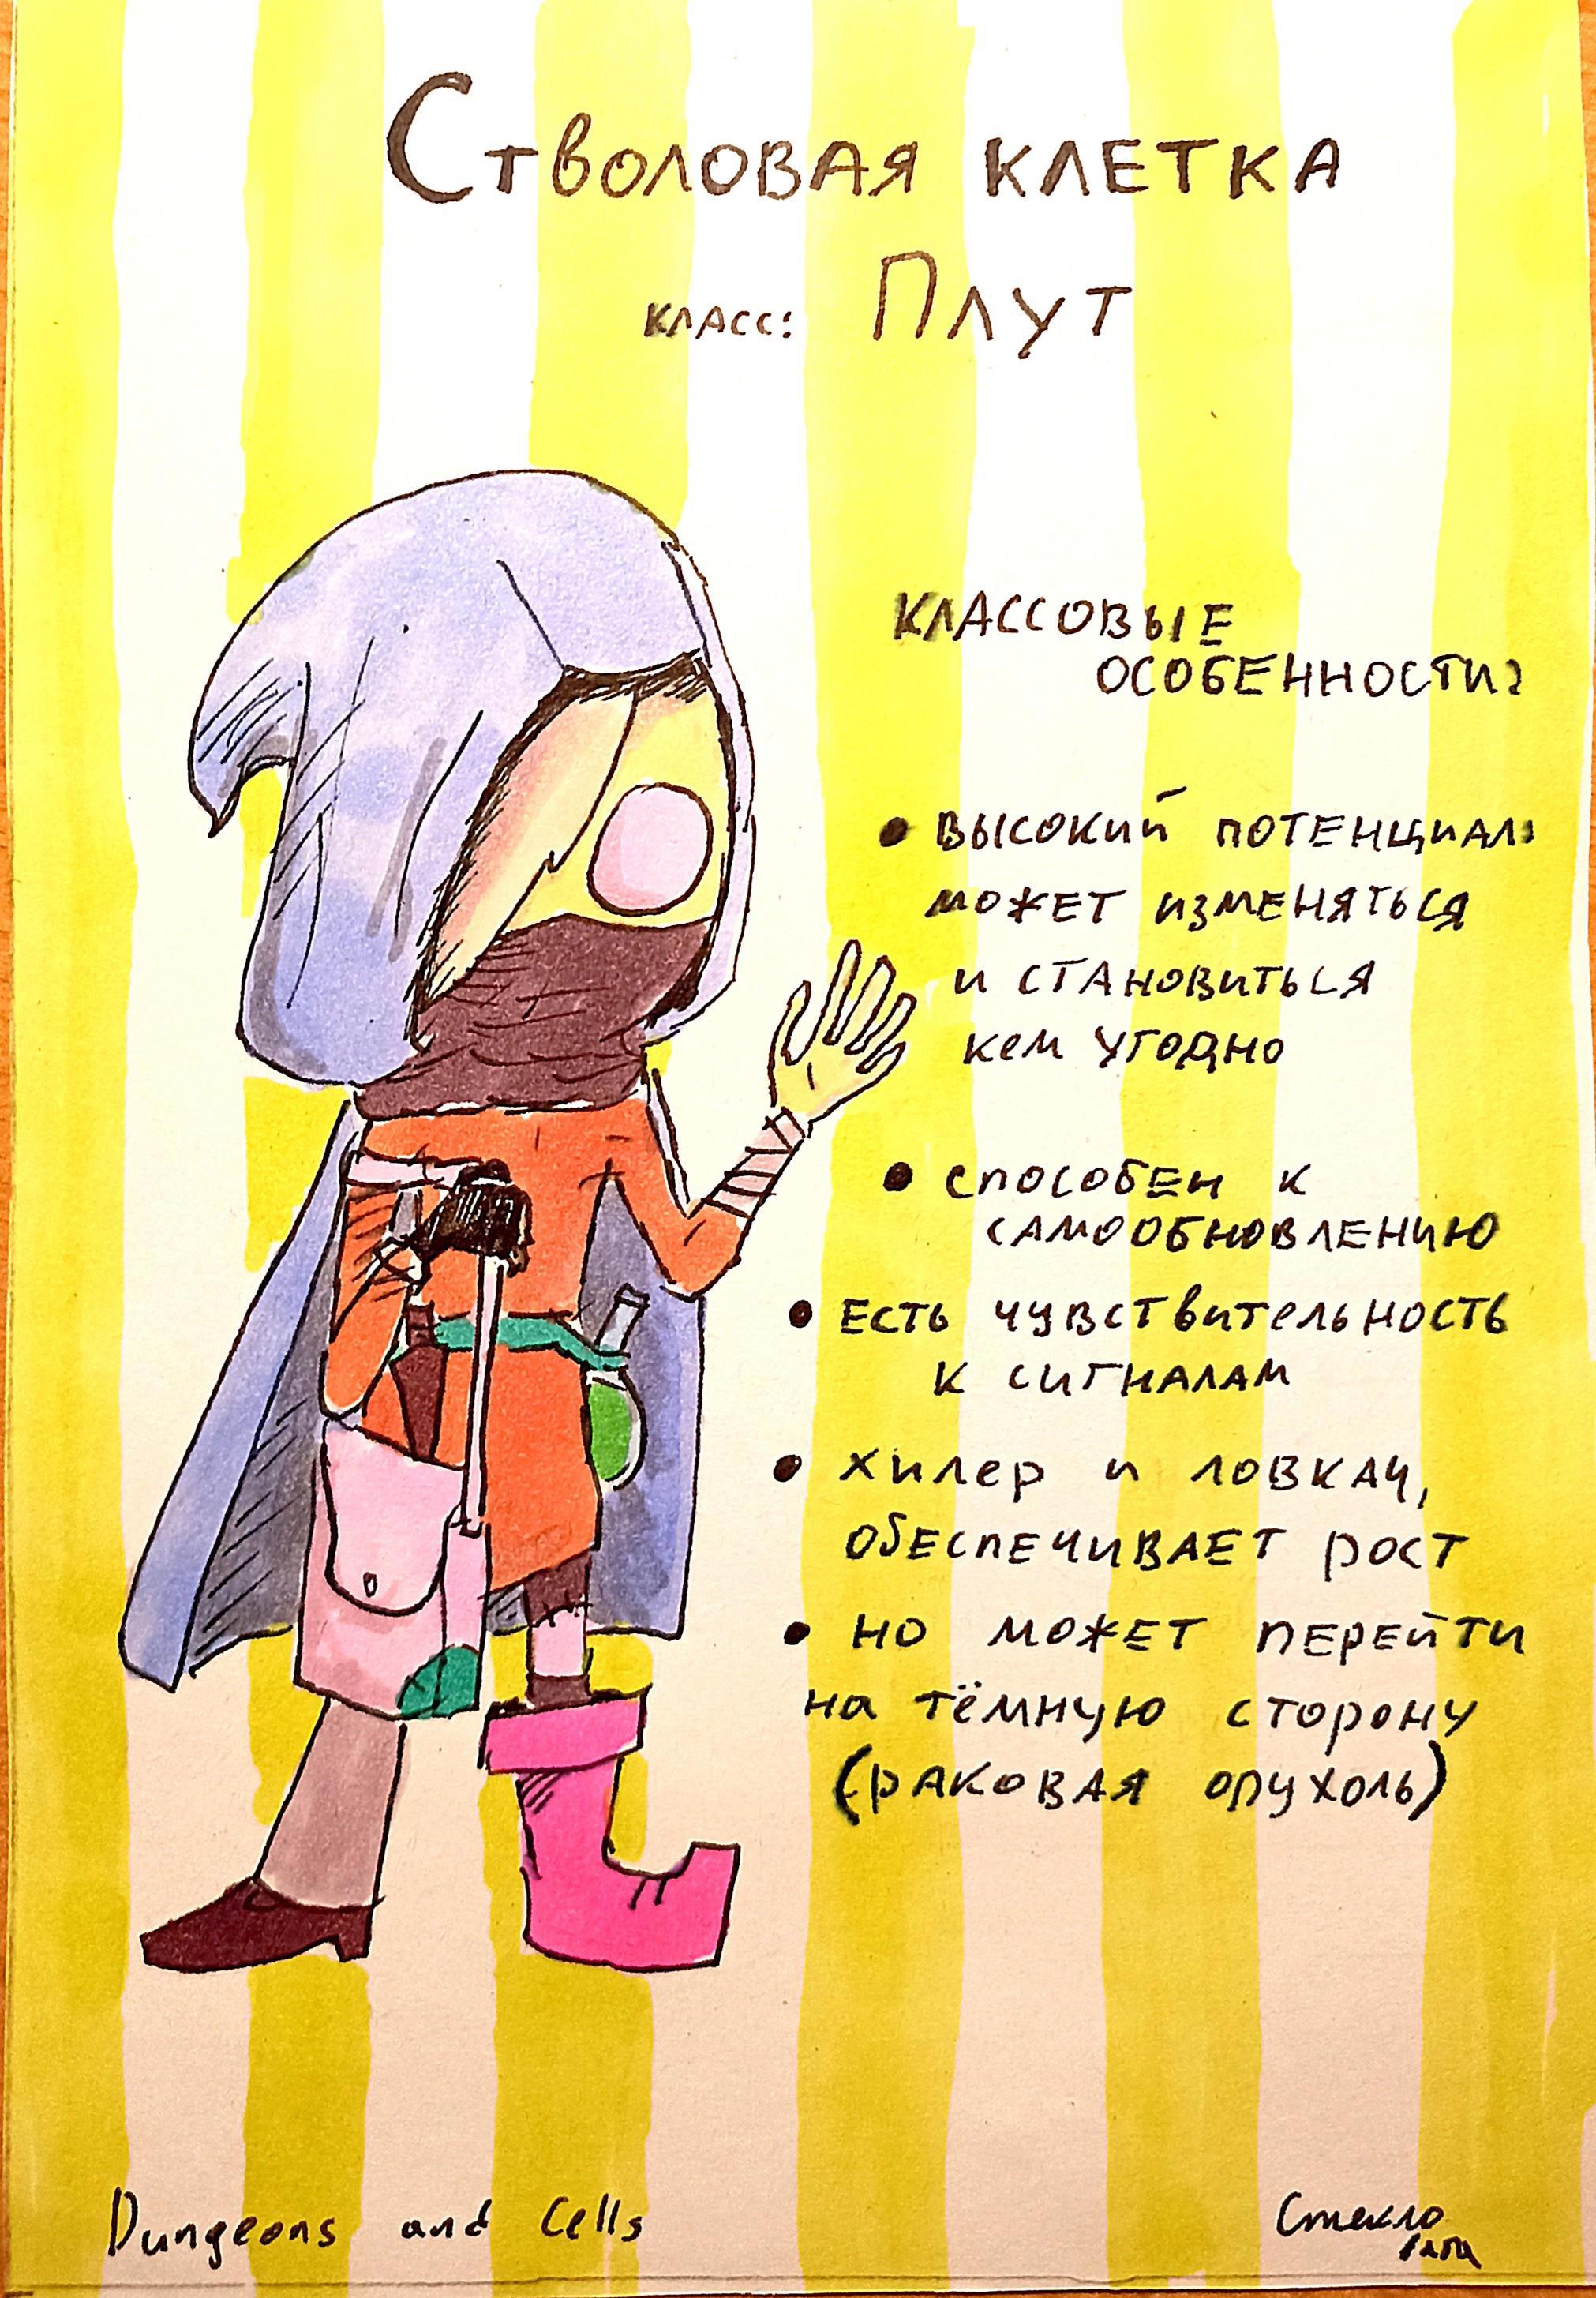 Стволовая клетка
класс: Плут
Классовые
особенности:
• высокий потенциал:
может изменяться
и становиться
кем угодно
• способен к
самообновлению
• Есть чувствительность
к сигналам
• хилер и ловкач,
обеспечивает рост
• но может перейти
на тёмную сторону
(раковая опухоль)
Dungeons and Cells
Стекло